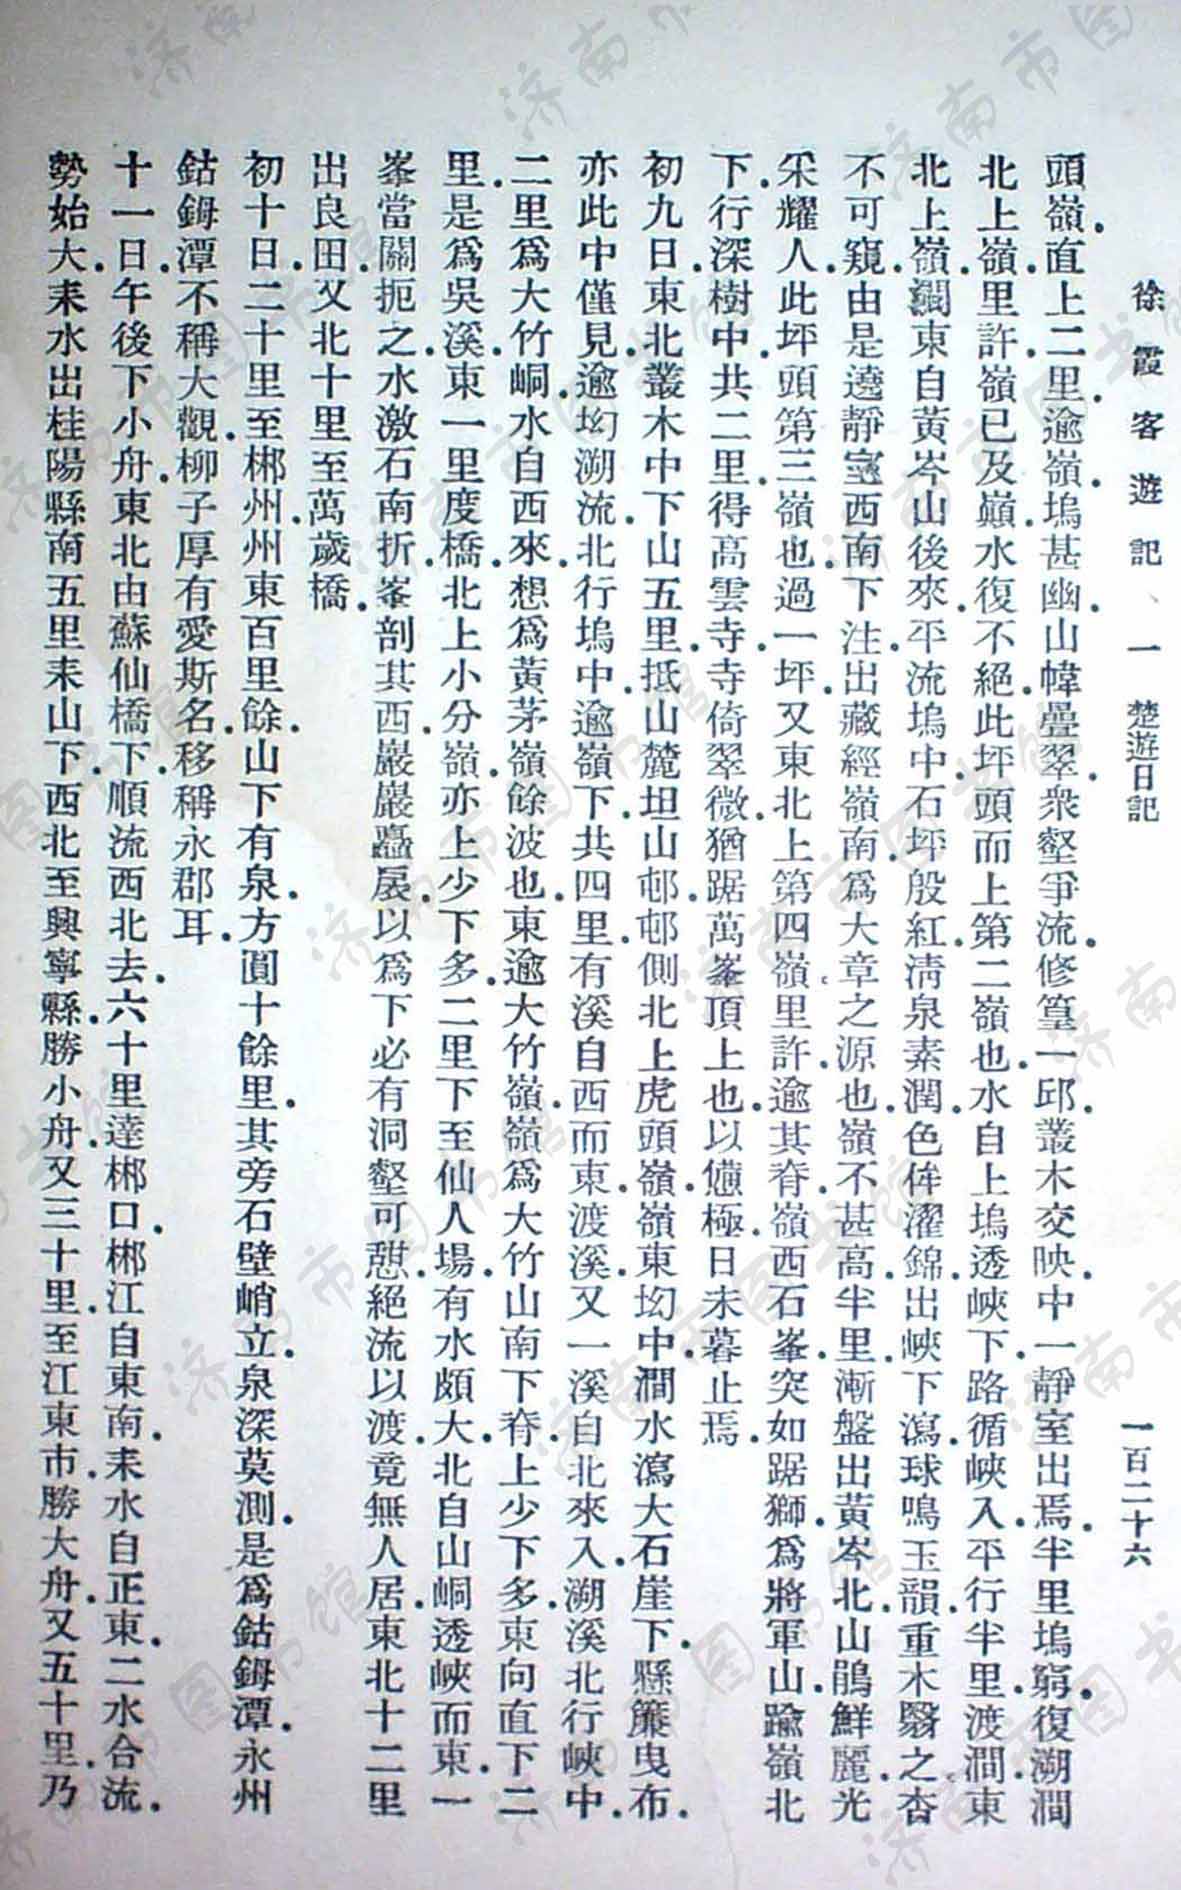 徐霞客遊記 一 楚遊日記 一百二十六
頭嶺．直上二里．逾嶺．塢甚幽．山幃疊翠．衆壑爭流．修篁一邱．叢木交映．中一靜室出焉．半里塢窮．復溯澗
北上嶺．里許．嶺已及巔．水復不絕．此坪頭而上第二嶺也．水自上塢透峽下．路循峽入．平行半里．渡澗．東
北上嶺．澗東自黃岑山後來．平流塢中．石坪殷紅．清泉素潤．色侔濯錦．出峽下瀉．球鳴玉韻．重木翳之．杳
不可窺．由是遶靜室西南下注．出藏經嶺南．爲大章之源也．嶺不甚高．半里．漸盤出黃岑北山．鵑鮮麗．光
采耀人．此坪頭第三嶺也．過一坪．又東北上第四嶺．里許．逾其脊．嶺西石峯突如踞獅．爲將軍山．踰嶺北
下．行深樹中．共二里．得高雲寺．寺倚翠微．猶踞萬峯頂上也．以憊極．日未暮止焉．
初九日．東北叢木中下山．五里．抵山麓坦山邨．邨側北上虎頭嶺．嶺東㘭中．澗水瀉大石崖下．縣簾曳布．
亦此中僅見．逾㘭溯流．北行塢中．逾嶺下．共四里．有溪自西而東．渡溪．又一溪自北來入．溯溪北行峽中．
二里．爲大竹峒．水自西來．想爲黃茅嶺餘波也．東逾大竹嶺．嶺爲大竹山南下脊．上少下多．東向直下二
里．是爲吳溪．東一里度橋．北上小分嶺．亦上少下多．二里下至仙人場．有水頗大．北自山峒透峽而東．一
峯當關扼之．水激石南折．峯剖其西．巖巖驫扆．以爲下必有洞壑可憩．絕流以渡．竟無人居．東北十二里
出良田．又北十里至萬歲橋．
初十日．二十里至郴州．州東百里餘．山下有泉．方圓十餘里．其旁石壁峭立．泉深莫測．是爲鈷鉧潭．永州
鈷鉧潭不稱大觀．柳子厚有愛斯名．移稱永郡耳．
十一日．午後下小舟．東北由蘇仙橋下．順流西北去．六十里達郴口．郴江自東南．耒水自正東．二水合流．
勢始大．耒水出桂陽縣南五里耒山下．西北至興寧縣．勝小舟．又三十里．至江東市．勝大舟．又五十里．乃